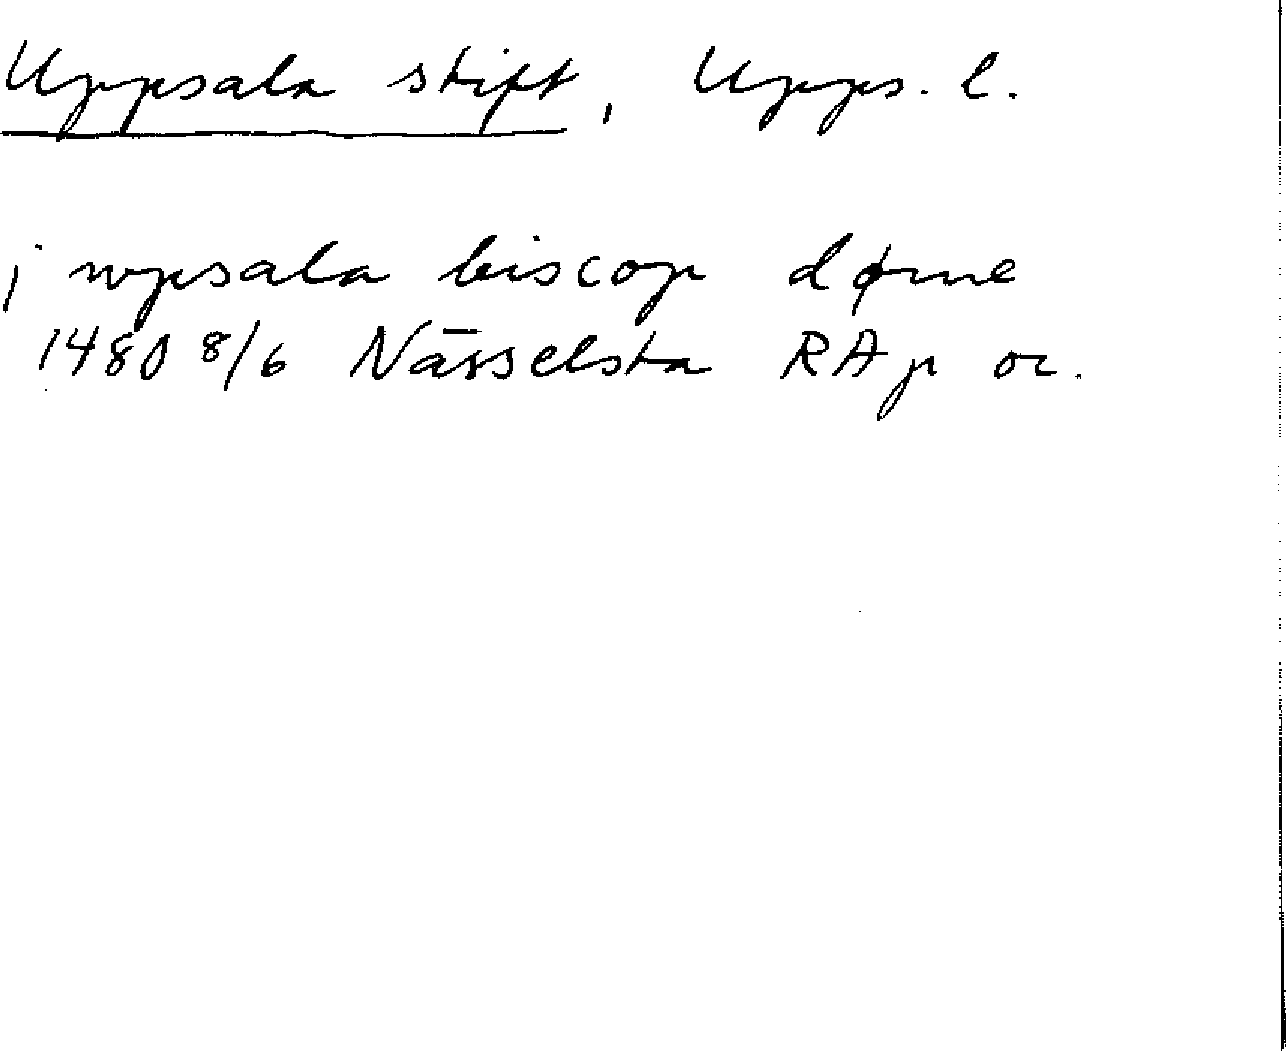 Uppsala stift, Upps. l.
j wpsala biscop døme
1480 8/6 Nässelsta RAp or.